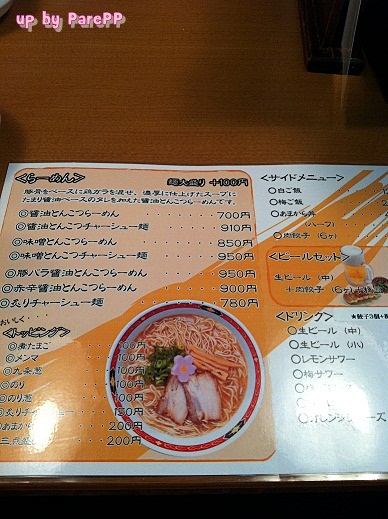 up by ParePP
＜らーめん＞
麺大盛り +100円
豚骨をベースに鶏ガラを混ぜ、濃厚に仕上げたスープに
たまり醤油ベースのタレを加えた醤油とんこつらーめんです。
◎醤油とんこつらーめん ・・・・・・・ 700円
◎醤油とんこつチャーシュー麺 ・・・・ 910円
◎味噌とんこつらーめん ・・・・・・・ 850円
◎味噌とんこつチャーシュー麺 ・・・・ 950円
◎豚バラ醤油とんこつらーめん ・・・・ 950円
◎赤辛醤油とんこつらーめん ・・・・・ 900円
◎炙りチャーシュー麺 ・・・・・・・・ 780円
おいしく・・・
＜トッピング＞
◎煮たまご 100円
◎メンマ 100円
◎九条葱 100円
◎のり 100円
◎のり葱 100円
◎炙りチャ 150円
◎あまから 200円
三点盛 200円
＜サイドメニュー＞
◎白ご飯
◎梅ご飯
◎あまから丼
（ハーフ）
◎肉餃子（6ヶ）
＜ビールセット＞
生ビール（中）
＋肉餃子（6ヶ）
＜ドリンク＞ ★餃子3個+
◎生ビール（中）
◎生ビール（小）
◎レモンサワー
◎梅サワー
オレンジジュース